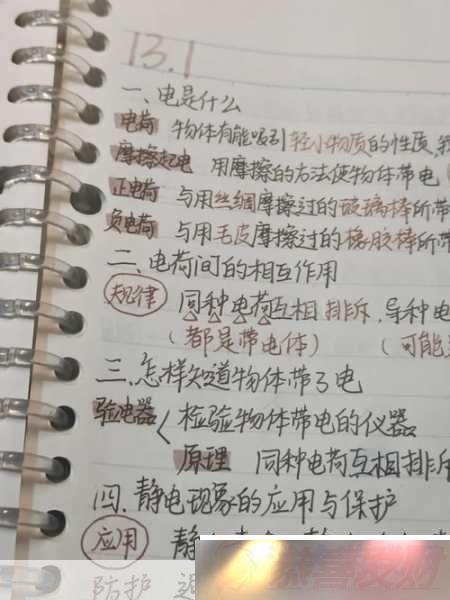 13.1
一、电是什么
电荷 物体有能吸引轻小物质的性质,
摩擦起电 用摩擦的方法使物体带电
正电荷 与用丝绸摩擦过的玻璃棒所带
负电荷 与用毛皮摩擦过的橡胶棒所带
二、电荷间的相互作用
规律 同种电荷互相排斥,异种电
(都是带电体) (可能
三、怎样知道物体带了电
验电器 检验物体带电的仪器
原理 同种电荷互相排斥
四、静电现象的应用与保护
应用 静
防护
恭喜发财